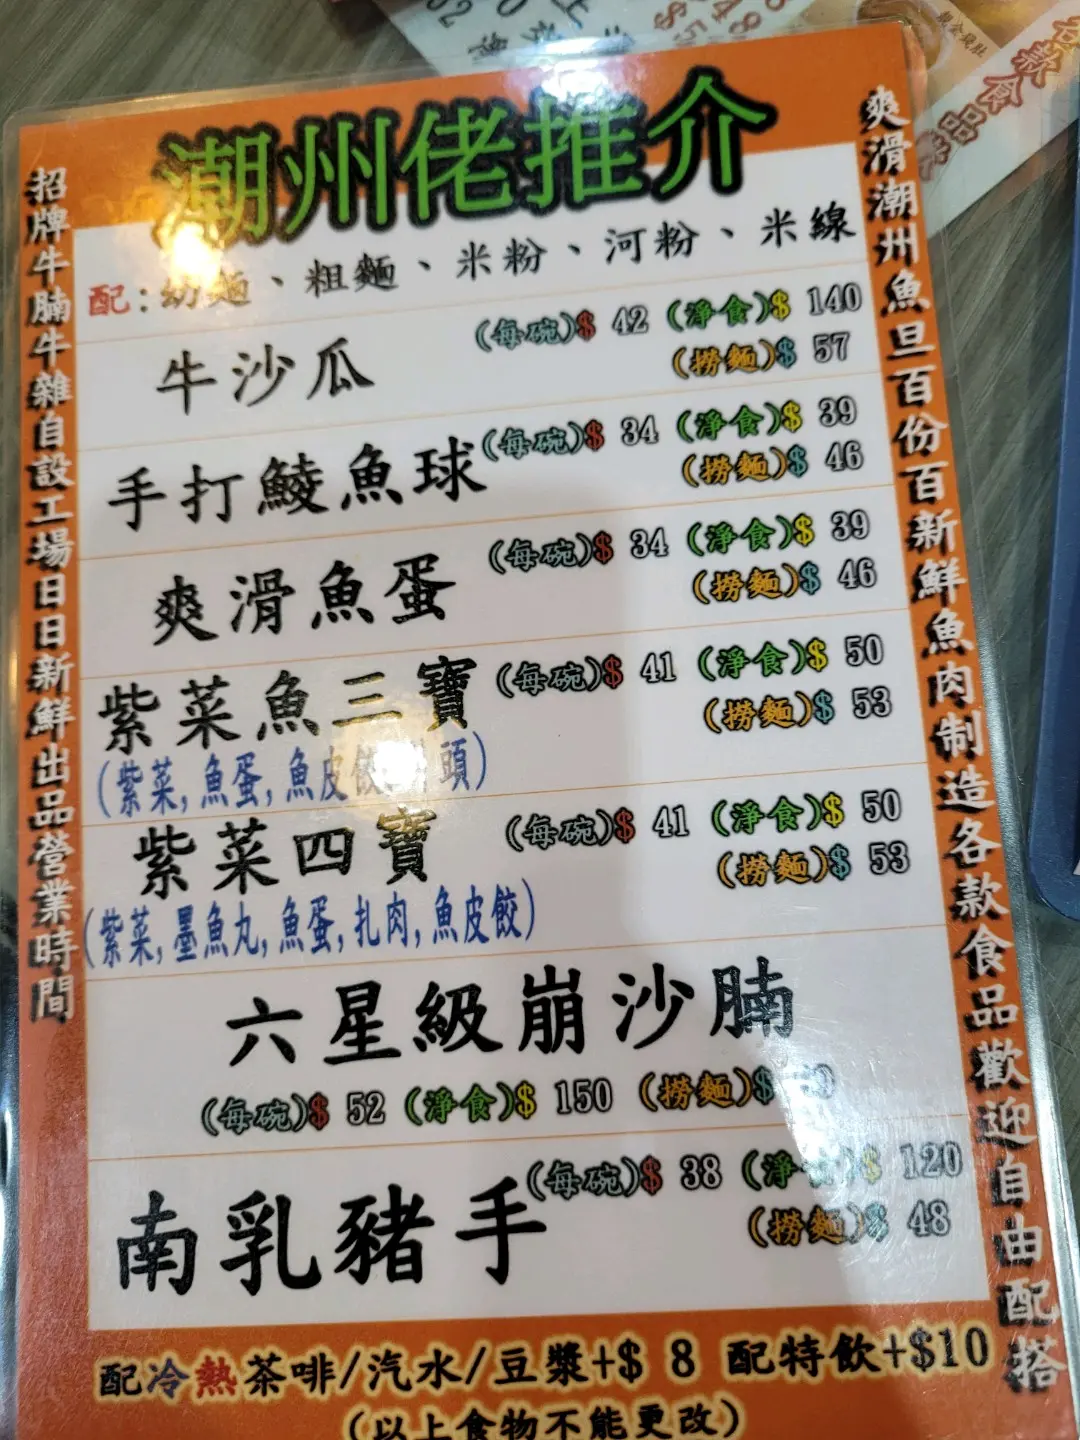 潮州佬推介
配:幼麵、粗麵、米粉、河粉、米線
牛沙瓜
(每碗)$ 42 (淨食)$ 140
(撈麵)$ 57
手打鯪魚球
(每碗)$ 34 (淨食)$ 39
(撈麵)$ 46
爽滑魚蛋
(每碗)$ 34 (淨食)$ 39
(撈麵)$ 46
紫菜魚三寶
(每碗)$ 41 (淨食)$ 50
(撈麵)$ 53
(紫菜,魚蛋,魚皮餃 頭)
紫菜四寶
(每碗)$ 41 (淨食)$ 50
(撈麵)$ 53
(紫菜,墨魚丸,魚蛋,扎肉,魚皮餃)
六星級崩沙腩
(每碗)$ 52 (淨食)$ 150 (撈麵)$
南乳豬手
(每碗)$ 38 (淨食)$ 120
(撈麵)$ 48
配冷熱茶啡/汽水/豆漿+$ 8 配特飲+$10
(以上食物不能更改)
招牌牛腩牛雜自設工場日日新鮮出品營業時間
爽滑潮州魚旦百份百新鮮魚肉制造各款食品歡迎自由配搭